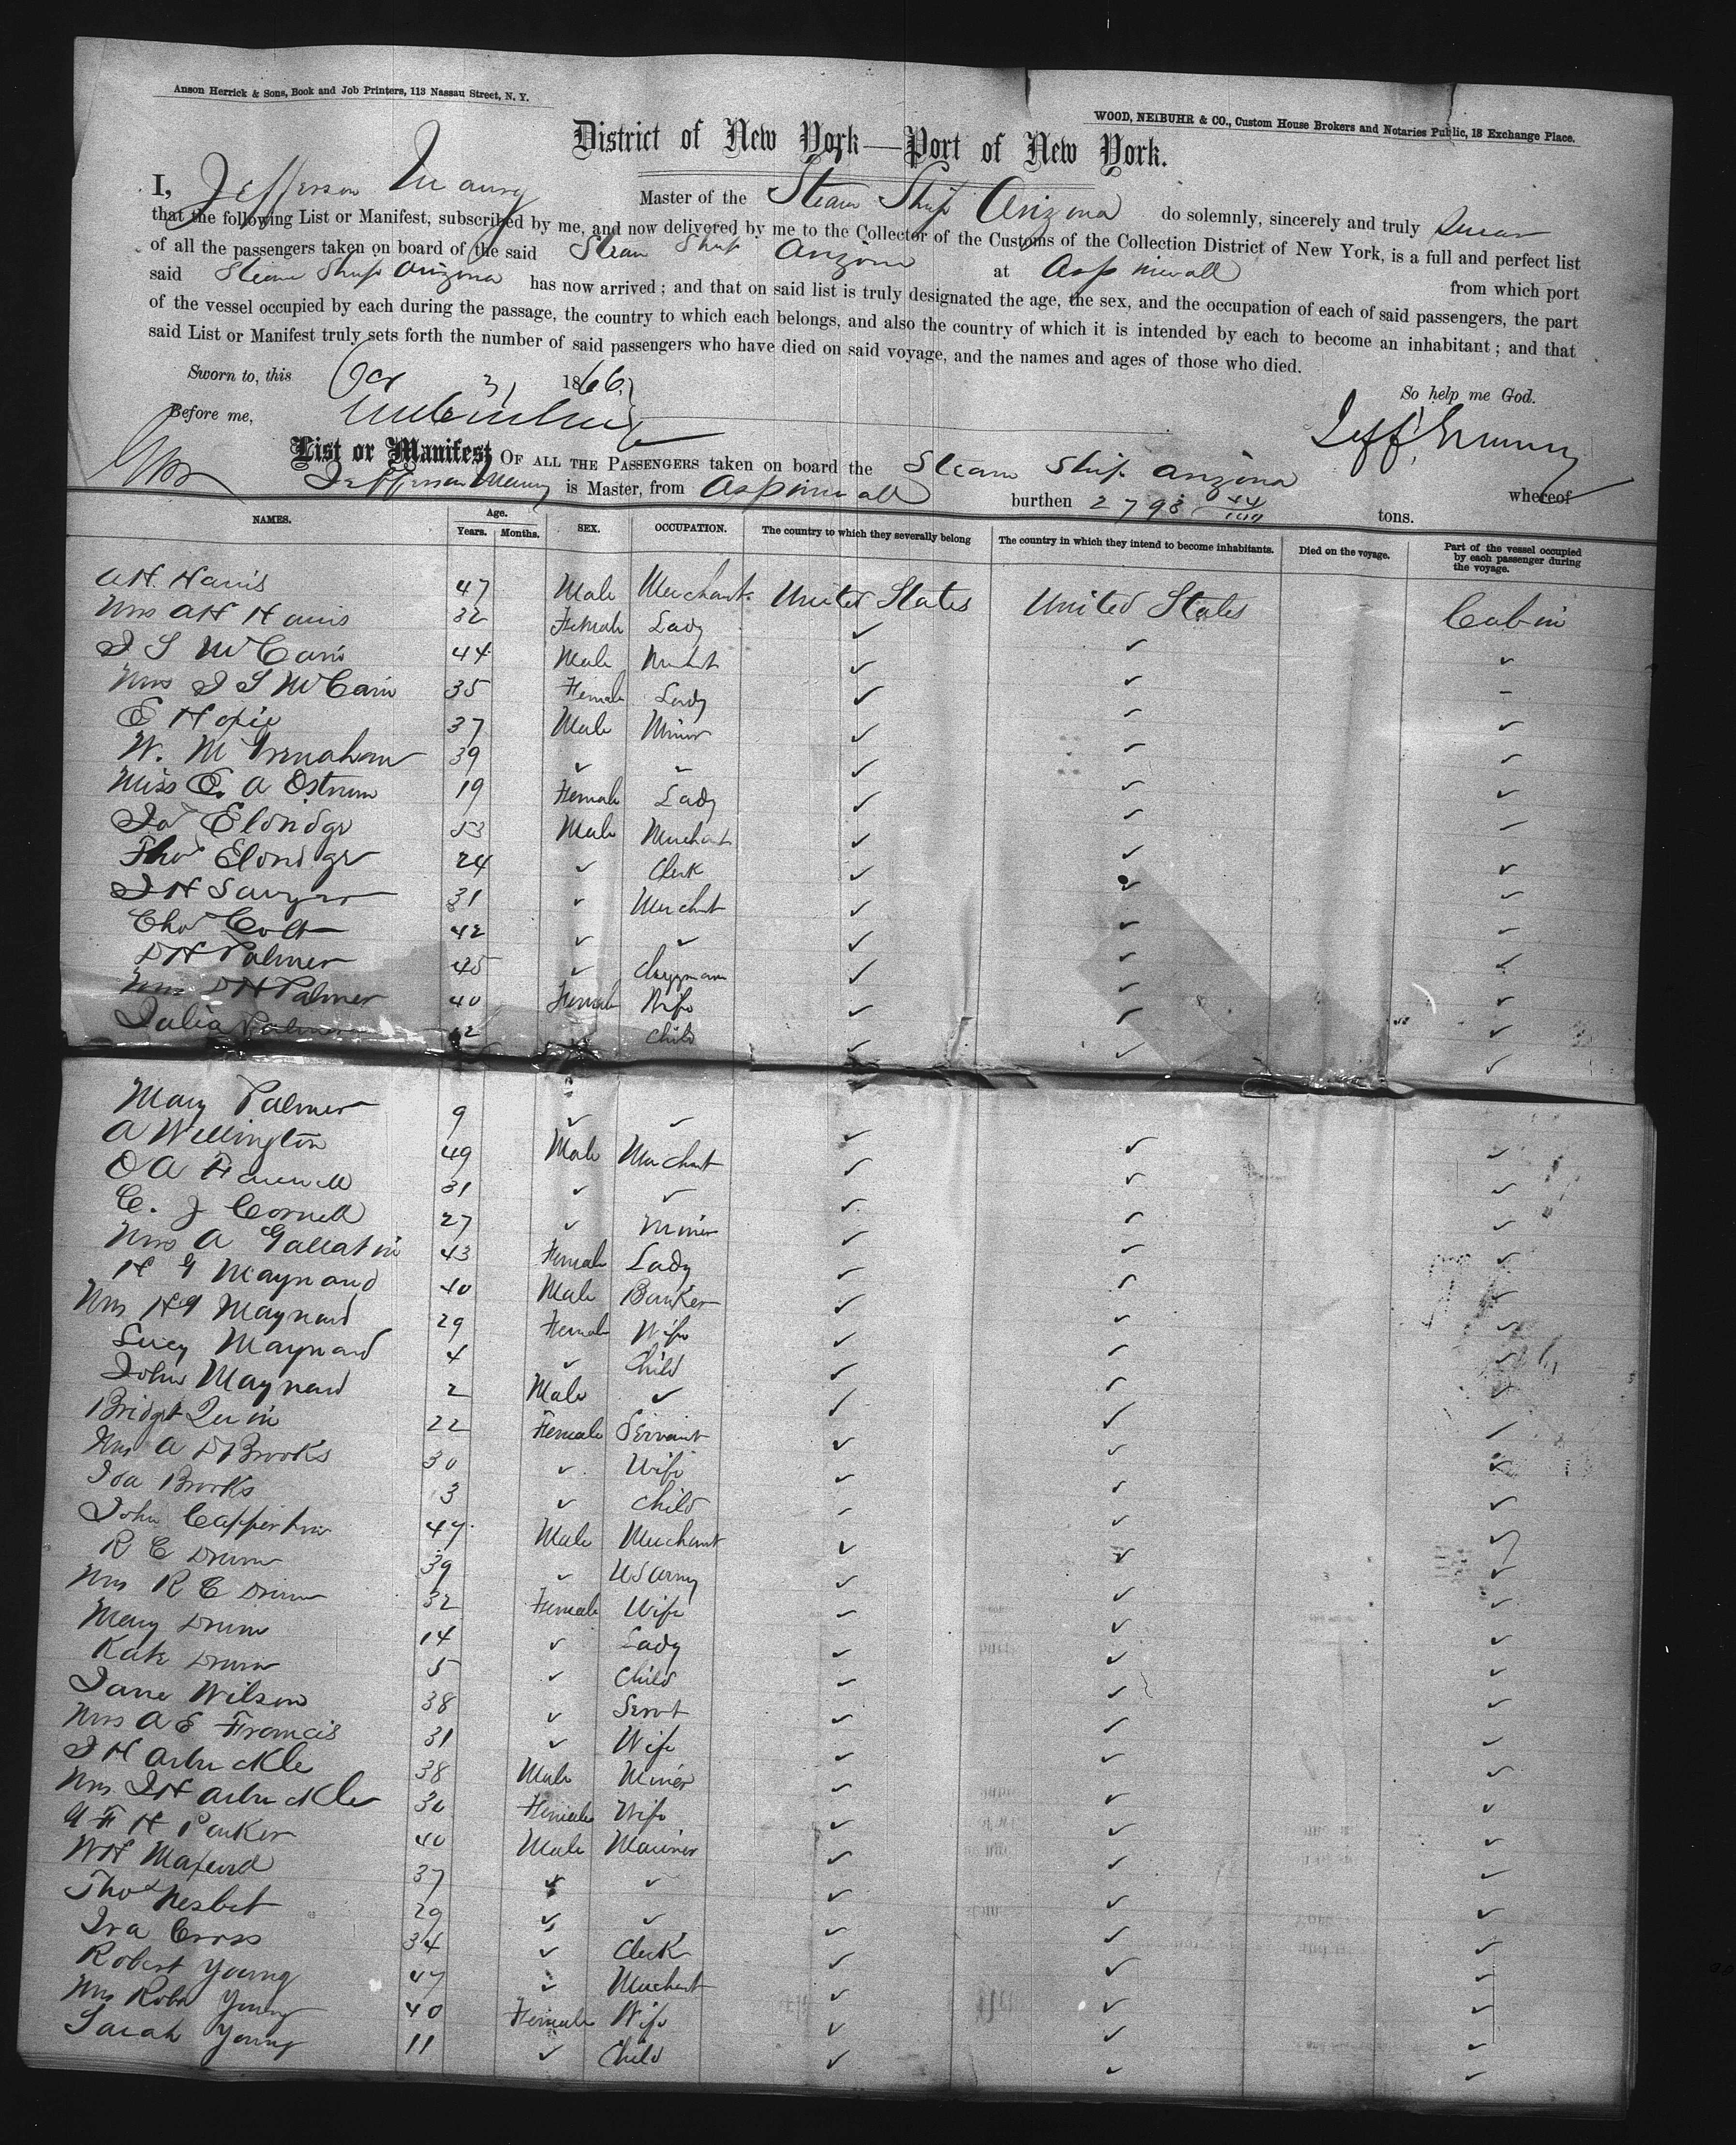 Anson Herrick & Sons, Book and Job Printers, 113 Nassau Street, N. Y.
WOOD, NEIBUHR & CO., Custom House Brokers and Notaries Public, 18 Exchange Place.
District of New York—Port of New York.
I, Jefferson Maury Master of the Steam Ship Arizona do solemnly, sincerely and truly Swear
that the following List or Manifest, subscribed by me, and now delivered by me to the Collector of the Customs of the Collection District of New York, is a full and perfect list
of all the passengers taken on board of the said Steam Ship Arizona at Aspinwall from which port
said Steam Ship Arizona has now arrived; and that on said list is truly designated the age, the sex, and the occupation of each of said passengers, the part
of the vessel occupied by each during the passage, the country to which each belongs, and also the country of which it is intended by each to become an inhabitant; and that
said List or Manifest truly sets forth the number of said passengers who have died on said voyage, and the names and ages of those who died.
Sworn to, this Oct 31 1866. So help me God.
Before me, Jeff. Maury
List or Manifest OF ALL THE PASSENGERS taken on board the Steam Ship Arizona whereof
Jefferson Maury is Master, from Aspinwall burthen 2798 44/100 tons.
NAMES. Age. Years. Months. SEX. OCCUPATION. The country to which they severally belong The country in which they intend to become inhabitants. Died on the voyage. Part of the vessel occupied by each passenger during the voyage.
A H. Harris 47 Male Merchant United States United States Cabin
Mrs A H Harris 32 Female Lady ✓ ✓ ✓
J S McCain 44 Male Mercht ✓ ✓
Mrs J S McCain 35 Female Lady ✓ ✓ ✓
E 37 Male Miner ✓ ✓ ✓
W. 39 ✓ ✓ ✓ ✓ ✓
Miss E. A Ostrum 19 Female Lady ✓ ✓ ✓
Jas Eldridge 53 Male Merchant ✓ ✓ ✓
Thos Eldridge 24 ✓ Clerk ✓ ✓ ✓
J H Sawyer 31 ✓ Merchant ✓ ✓ ✓
Chas Colt 42 ✓ ✓ ✓ ✓ ✓
D H Palmer 45 ✓ Clergyman ✓ ✓ ✓
Mrs D H Palmer 40 Female Wife ✓ ✓ ✓
Julia Palmer 12 Child ✓ ✓ ✓
Mary Palmer 9 ✓ ✓ ✓ ✓ ✓
A Wellington 49 Male Merchant ✓ ✓ ✓
O A 31 ✓ ✓ ✓ ✓ ✓
C. J Cornell 27 ✓ Miner ✓ ✓ ✓
Mrs A Gallatin 43 Female Lady ✓ ✓ ✓
H G Maynard 40 Male Banker ✓ ✓ ✓
Mrs H G Maynard 29 Female Wife ✓ ✓ ✓
Lucy Maynard 4 ✓ Child ✓ ✓ ✓
John Maynard 2 Male ✓ ✓ ✓ ✓
Bridget Quin 22 Female Servant ✓ ✓ ✓
Mrs A D Brooks 30 ✓ Wife ✓ ✓ ✓
Ida Brooks 3 ✓ Child ✓ ✓ ✓
John Capperton 47 Male Merchant ✓ ✓ ✓
R C Drum 39 ✓ US Army ✓ ✓ ✓
Mrs R C Drum 32 Female Wife ✓ ✓ ✓
Mary Drum 14 ✓ Lady ✓ ✓ ✓
Kate Drum 5 ✓ Child ✓ ✓ ✓
Jane Wilson 38 ✓ Servt ✓ ✓ ✓
Mrs A E Francis 31 ✓ Wife ✓ ✓ ✓
J H Arbuckle 38 Male Miner ✓ ✓ ✓
Mrs J H Arbuckle 30 Female Wife ✓ ✓ ✓
G F H Parker 40 Male Mariner ✓ ✓ ✓
W H 37 ✓ ✓ ✓ ✓ ✓
Thos Nesbit 29 ✓ ✓ ✓ ✓ ✓
Ira Cross 34 ✓ Clerk ✓ ✓ ✓
Robert Young 47 ✓ Merchant ✓ ✓ ✓
Mrs Robt Young 40 Female Wife ✓ ✓ ✓
Sarah Young 11 ✓ Child ✓ ✓ ✓